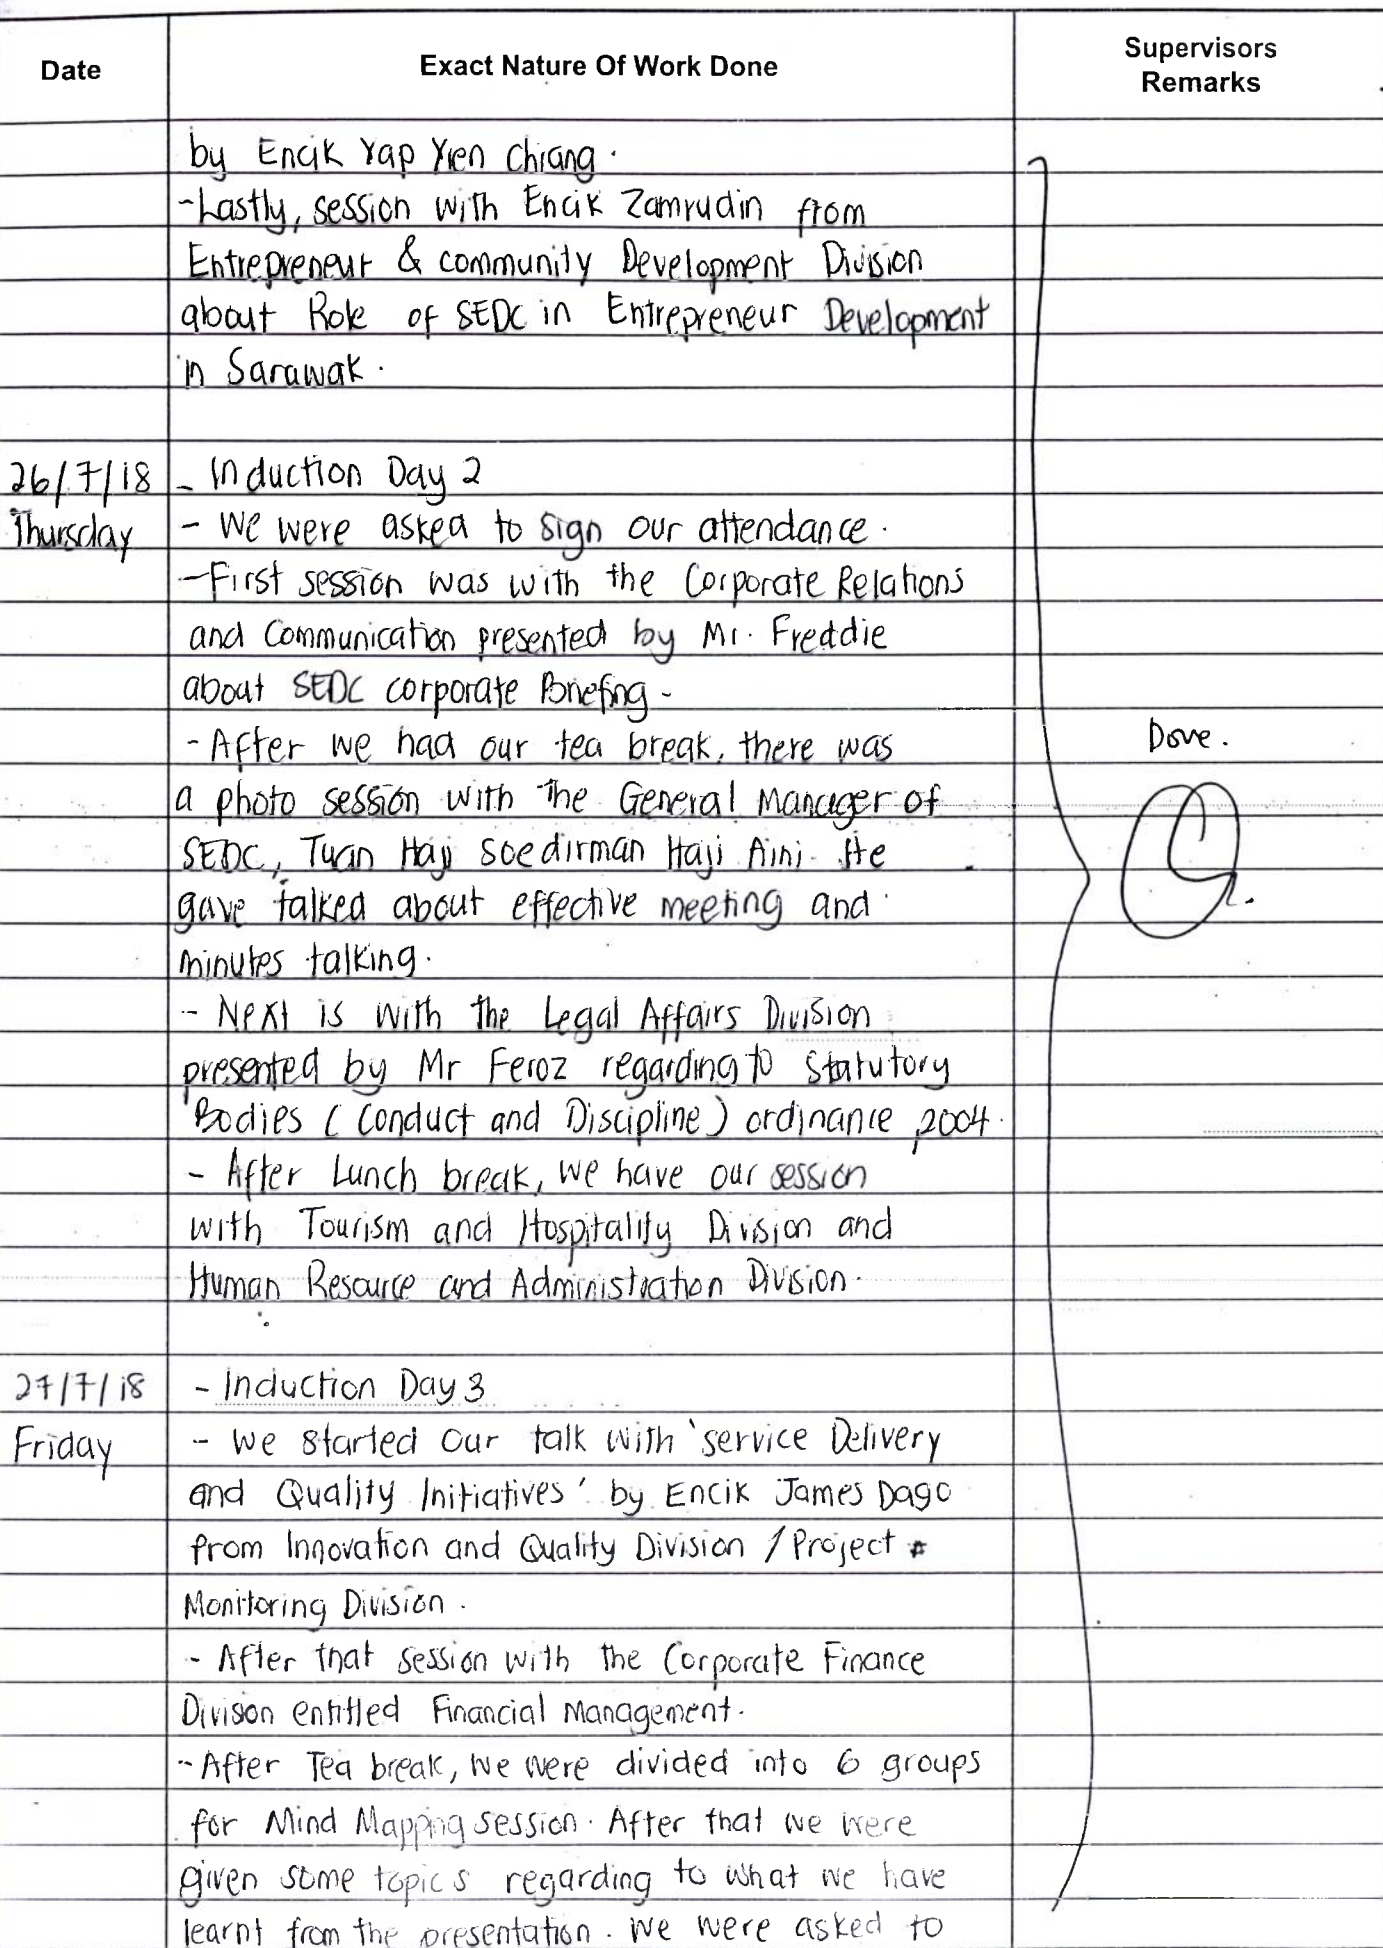 Date
Exact Nature Of Work Done
Supervisors
Remarks
by Encik Yap Yien Chiang.
- Lastly, session with Encik Zamrudin from
Entrepreneur & community Development Division
about Role of SEDC in Entrepreneur Development
in Sarawak.
26/7/18
- Induction Day 2
Thursday
- We were asked to sign our attendance.
- First session was with the Corporate Relations
and Communication presented by Mr. Freddie
about SEDC corporate Briefing -
- After we had our tea break, there was
Done.
a photo session with the General Manager of
SEDC, Tuan Haji Soedirman Haji Aini. He
gave talked about effective meeting and
minutes talking.
- Next is with the Legal Affairs Division
presented by Mr Feroz regarding to Statutory
Bodies (Conduct and Discipline) ordinance, 2004.
- After Lunch break, we have our session
with Tourism and Hospitality Division and
Human Resource and Administration Division.
27/7/18
- Induction Day 3
Friday
- We started our talk with 'service Delivery
and Quality Initiatives' by Encik James Dago
from Innovation and Quality Division / Project
Monitoring Division.
- After that session with the Corporate Finance
Division entitled Financial Management.
- After Tea break, we were divided into 6 groups
for Mind Mapping session. After that we were
given some topics regarding to what we have
learnt from the presentation. We were asked to